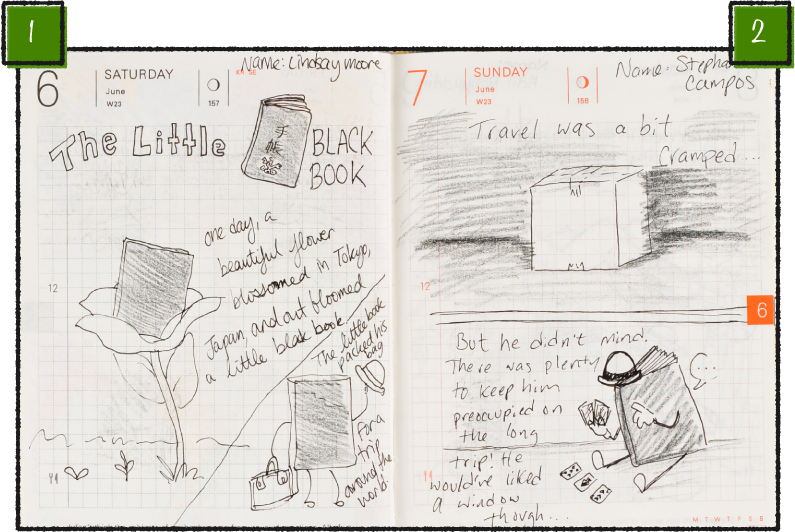 1
6
SATURDAY
June
W23
157
Name: Lindsay moore
The Little
手
帳
BLACK
BOOK
one day, a
beautiful flower
blossomed in Tokyo,
Japan, and out bloomed
a little black book.
12
The little book
packed his
bag
for a
trip
around the
world.
2
7
SUNDAY
June
W23
158
Name: Stepha
Campos
Travel was a bit
cramped...
12
6
But he didn't mind!
There was plenty
to keep him
preoccupied on
the long
trip! He
would've liked
a window
though...
...
M T W T F S S